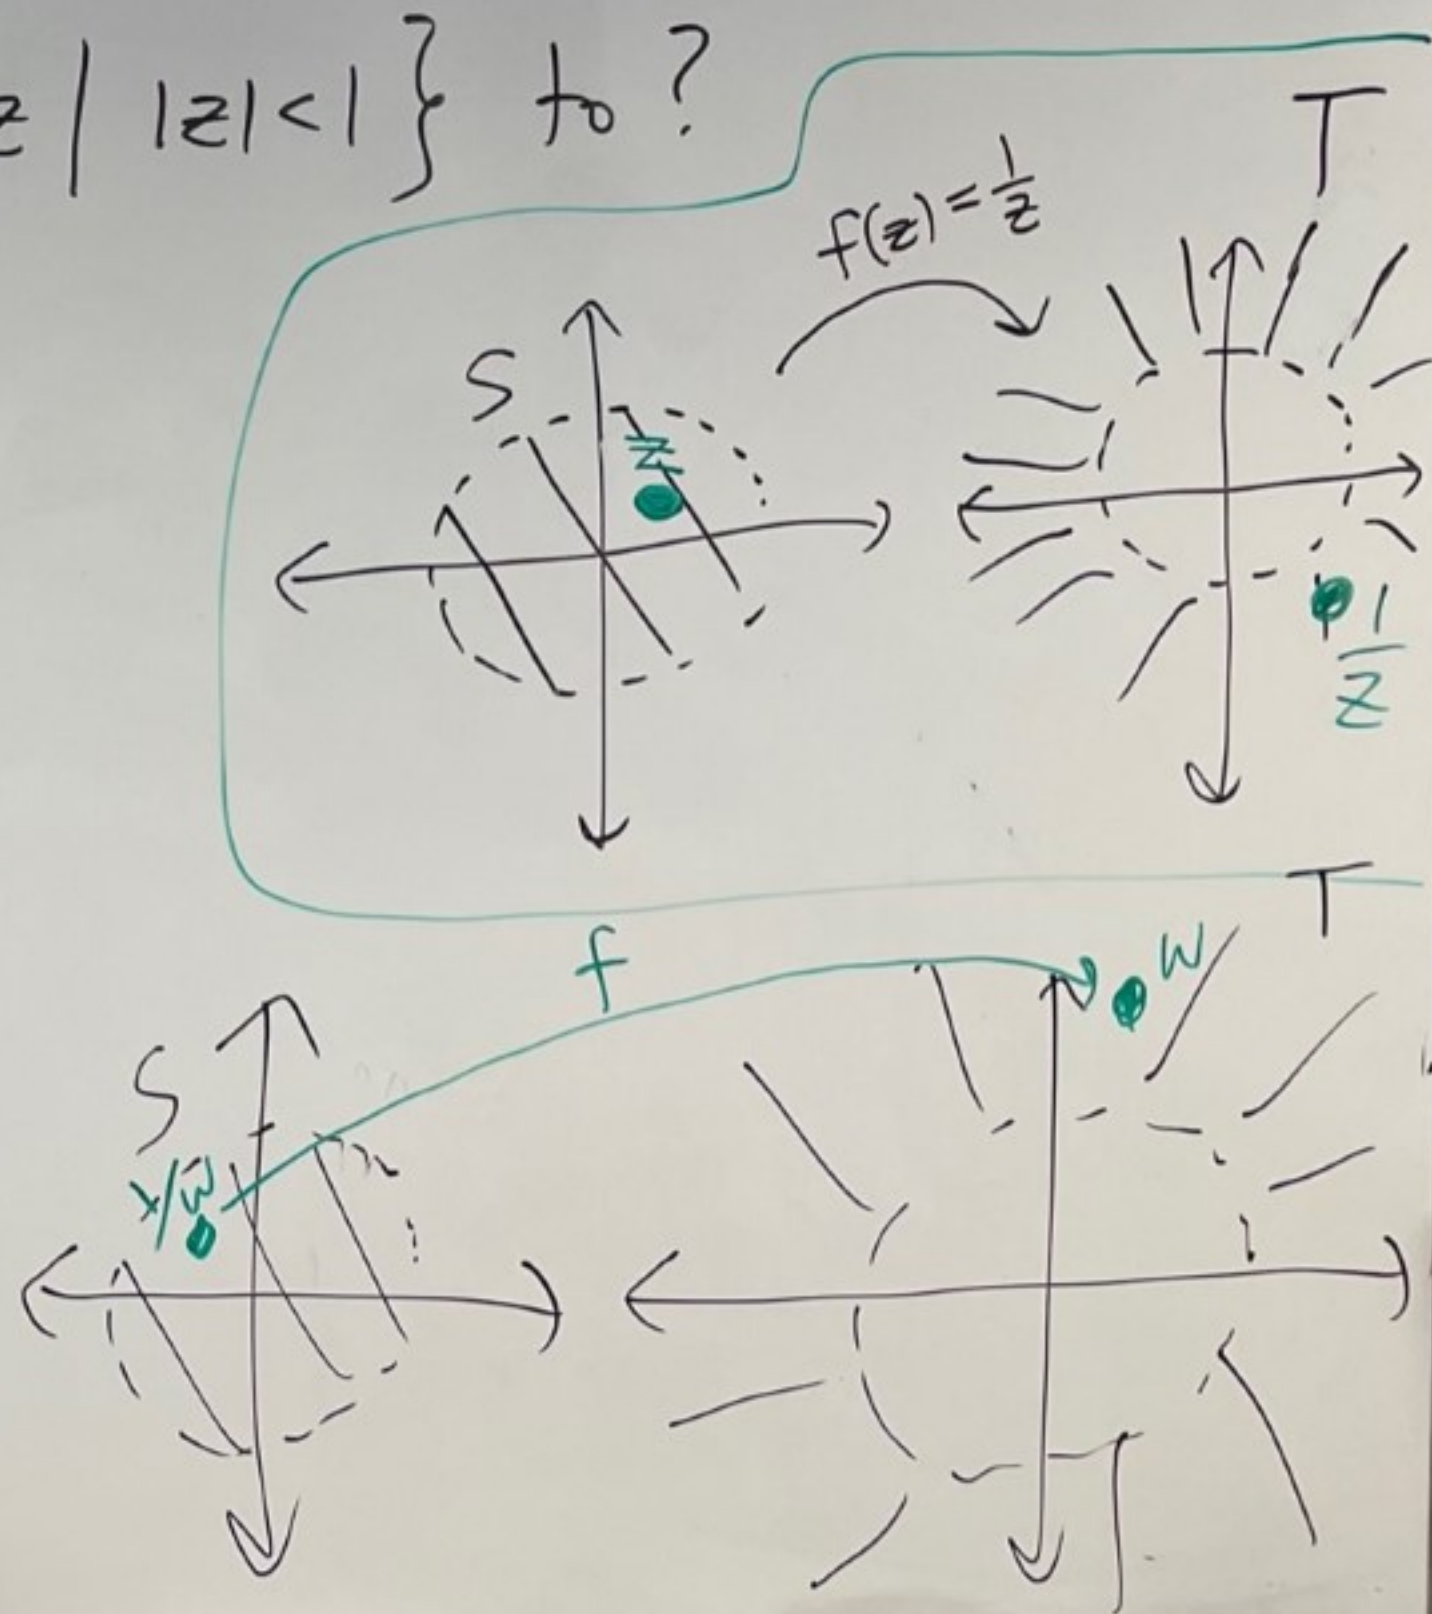 z | |z|<1} to?
T
f(z)=1/z
S
z
1/z
T
f
w
S
1/w